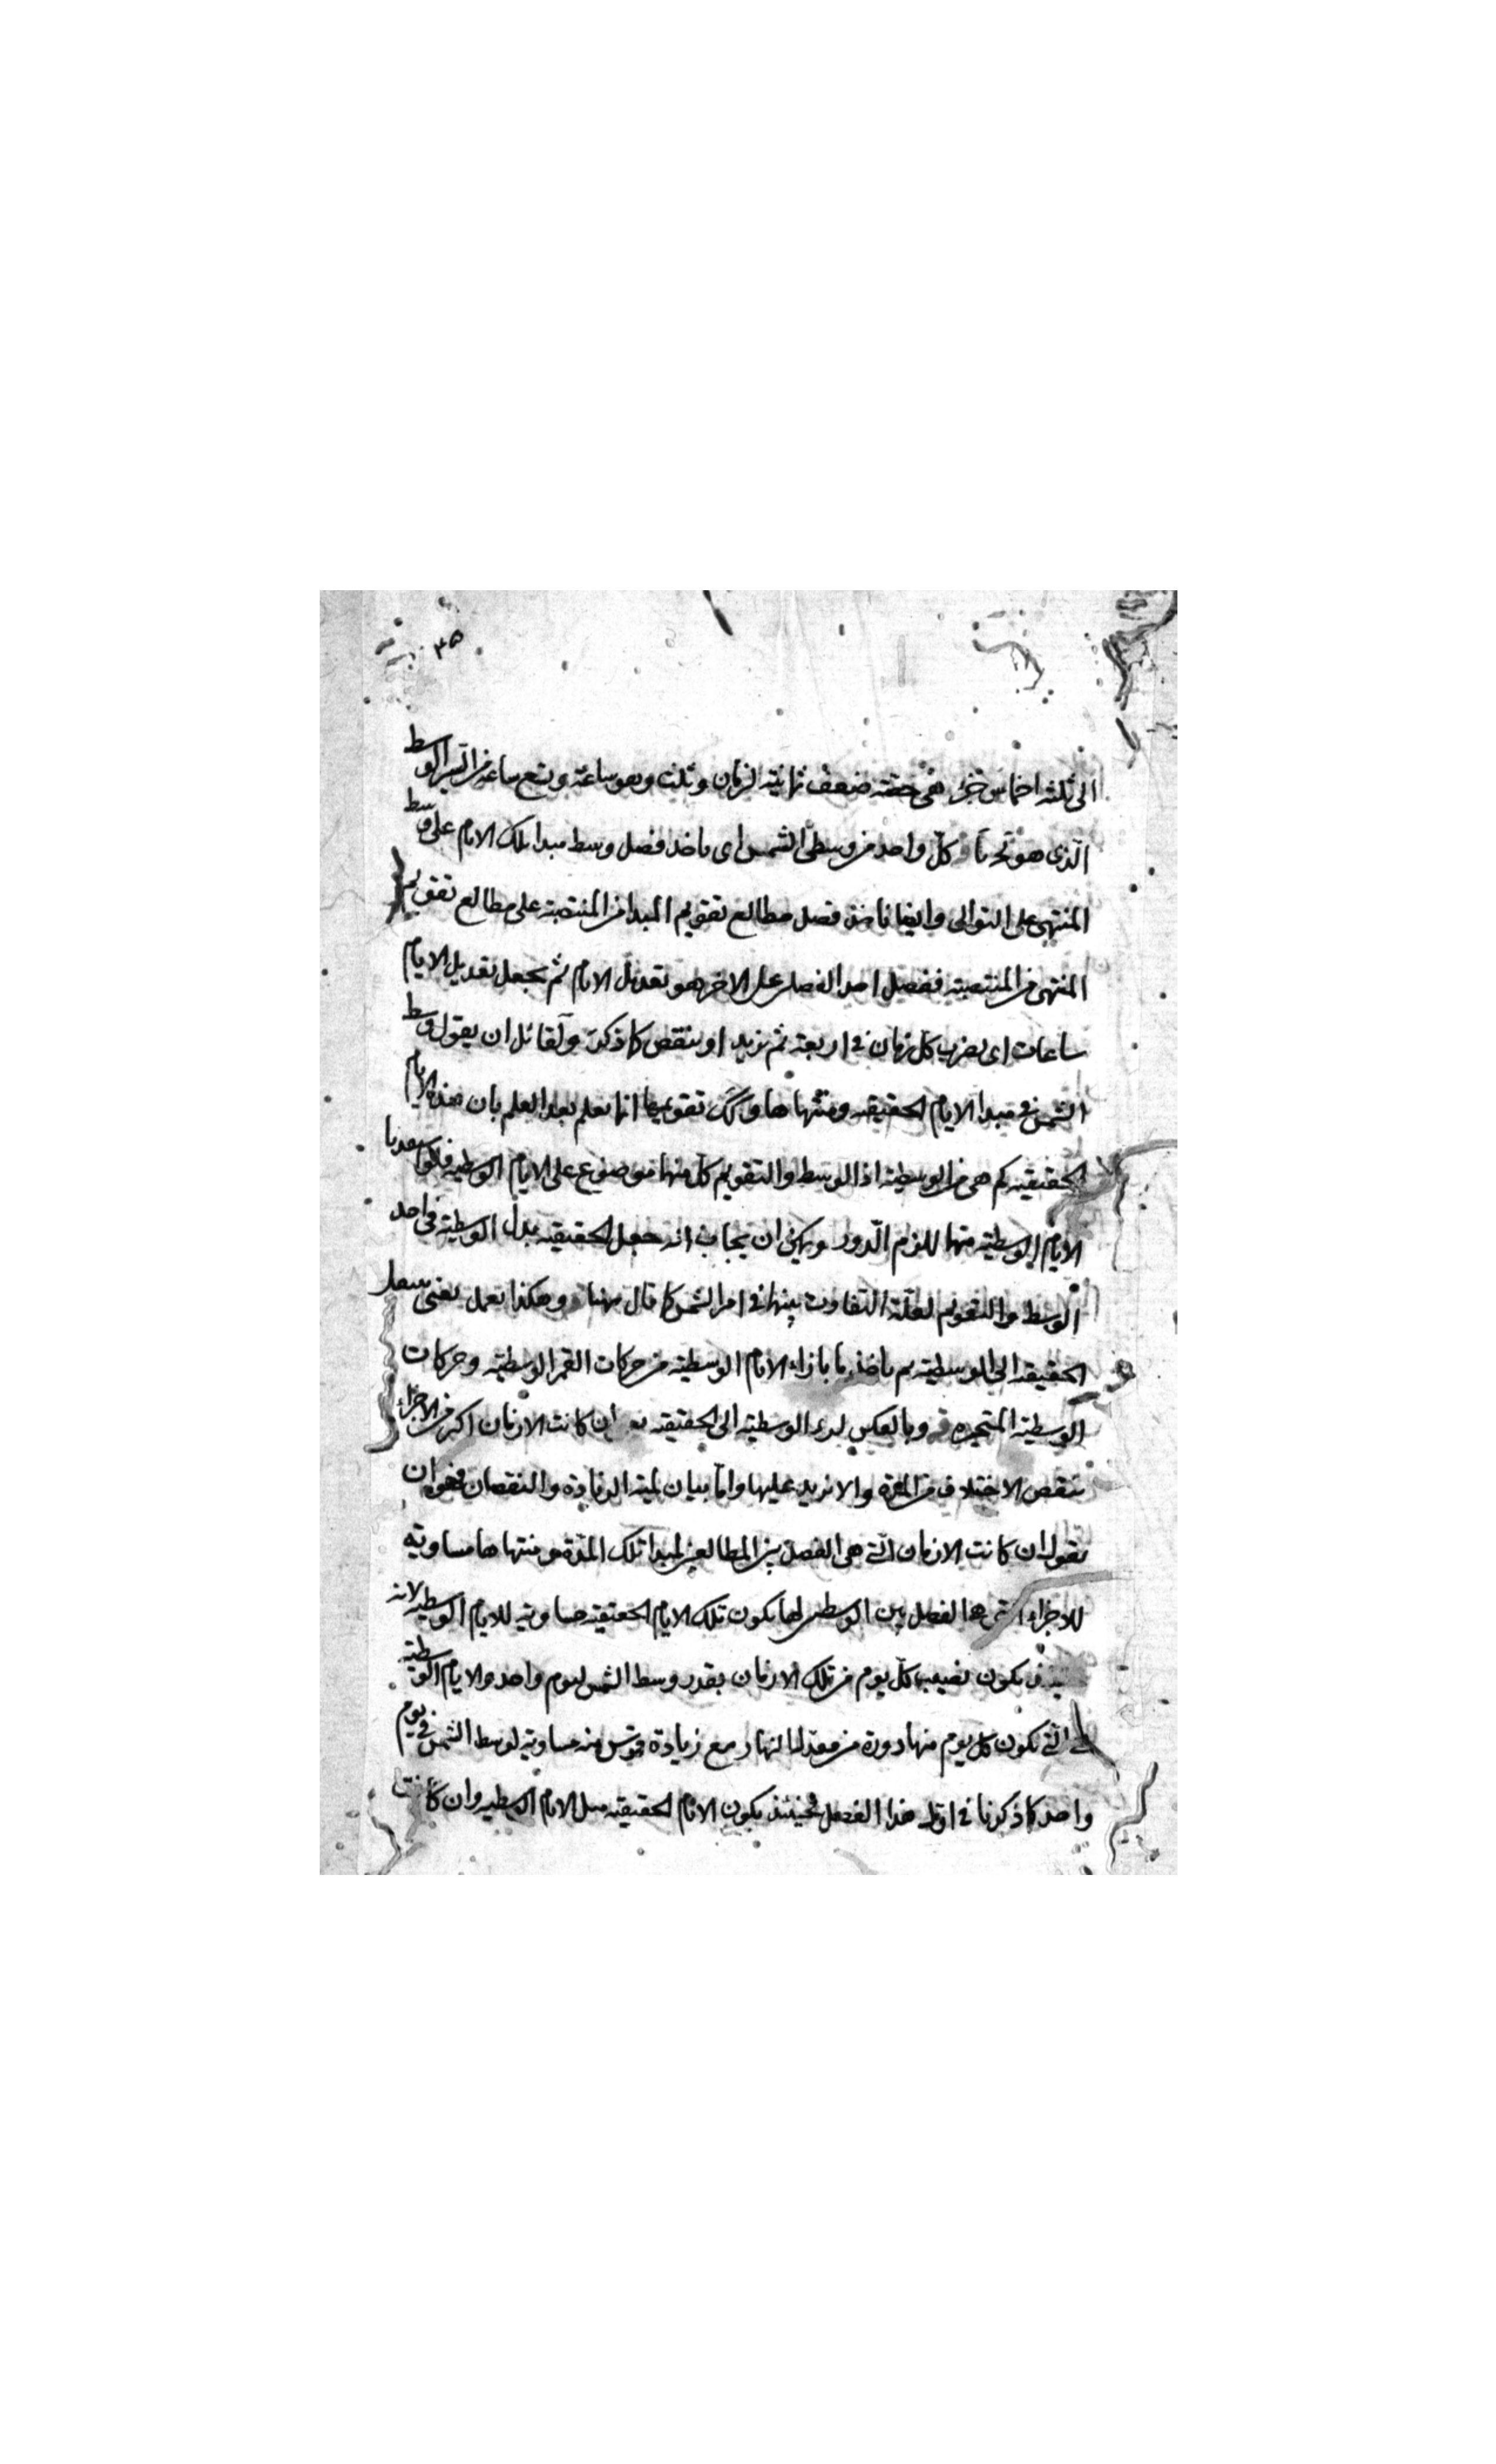 ٣٥
الى ثلثة اخماس جزء هى حصة ضعف ثمانية ازمان وثلث وهو ساعة وتسع ساعة من السير الوسط
الّذى هو كلّ واحد من وسطى الشمس اى ناخذ فضل وسط مبدا تلك الايام على وسط
المنتهى على التوالى وايضا ناخذ فضل مطالع تقويم المبدا من المنتصبة على مطالع تقويم
المنتهى من المنتصبة ففضل احد الفضلين على الاخر هو تعديل الايام ثم نجعل تعديل الايام
ساعات اى نضرب كل زمان فى اربعة ثم نزيد او ننقص كما ذكر ولقائل ان يقول وسط
الشمس فى مبدا الايام الحقيقية ومنتهاها وكذا تقويمها انما نعلم بعد العلم بان هذه الايام
الحقيقية كم هى من الوسطية اذ الوسط والتقويم كل منهما موضوع على الايام الوسطية فلو استعدنا
الايام الوسطية منها للزم الدور ويمكن ان يجاب انه جعل الحقيقية بدل الوسطية فى اخذ
الوسط والتقويم لقلة التفاوت بينهما فى امر الشمس كما قال وهكذا نعمل يعنى بنقل
الحقيقية الى الوسطية ثم ناخذ ما بازاء الايام الوسطية من حركات القمر الوسطية وحركات
الوسطية المتحيرة وبالعكس لرد الوسطية الى الحقيقية ان كانت الازمان اكثر من الاجزاء
ننقص الاختلاف من المدة والا نزيد عليها وامّا بيان لمية الزيادة والنقصان فهو ان
نقول ان كانت الازمان الّتى هى الفضل بين المطالعين لمبدا تلك المدة ومنتهاها مساوية
للاجزاء التى هى الفضل بين الوسطين لها يكون تلك الايام الحقيقية مساوية للايام الوسطية لانه
يكون نصيب كلّ يوم من تلك الازمان بقدر وسط الشمس ليوم واحد والايام الوسطية
هى الّتى يكون كل يوم منها دورة من معدل النهار مع زيادة قوس منه مساوية لوسط الشمس فى يوم
واحد كما ذكرنا فى اول هذا الفصل فحينئذ يكون الايام الحقيقية مثل الايام الوسطية وان كانت